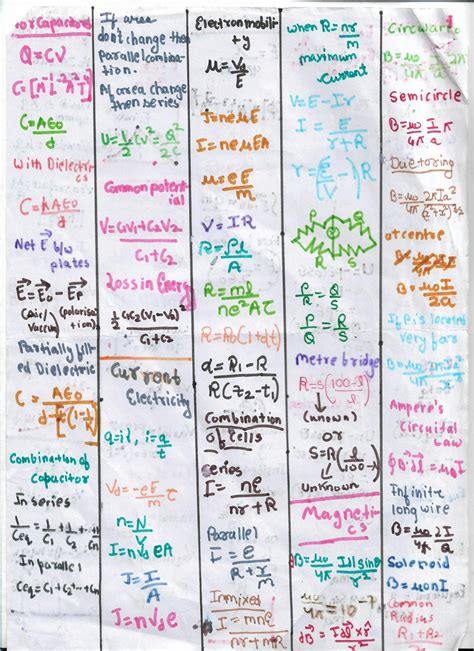 or Capacitors
Q=CV
C=[M⁻¹L⁻²T⁴I²]
C=Aε0/d
With Dielectr
ics
C=kAε0/d
Net E b/w
plates
E=E0-EP
(air/ (polarisa
vacuum) tion)
Partially fill
ed Dielectric
C=Aε0/d-t(1-1/k)
Combination of
Capacitor
In series
1/Ceq=1/C1+1/C2+-1/Cn
In parallel
Ceq=C1+C2+-Cn
If area
don't change then
Parallel combina
tion.
Al area change
then series
U=1/2CV²=Q²/2C
Common potent
ial
V=C1V1+C2V2/C1+C2
Loss in Energy
1/2 C1C2(V1-V2)²/C1+C2
Current
Electricity
q=it, i=q/t
Vd=-eE/m τ
n=N/V
I=nvdeA
J=I/A
J=nvde
Electron mobilit
y
μ=Vd/E
J=neμE
I=neμEA
μ=eτ/m
V=IR
R=ρl/A
R=ml/ne²Aτ
R=R0(1+αt)
α=R1-R/R(t2-t1)
Combination
of cells
series
I=nE/nr+R
Parallel
I=E/R+r/m
In mixed
I=mnE/nr+mR
when R=nr/m
maximum
current
V=E-Ir
I=E/r+R
r=(E/V-1)R
P Q
R S
P/R=Q/S
P/Q=R/S
Metre bridge
R=S(100-l/l)
(known)
or
S=R(l/100-l)
Unknown
Magneti
cs
B=μ0/4π Idl sinθ/r²
μ0/4π=10⁻⁷
dB=μ0/4π Idl×r̂/r³
B=μ0/4π 2πI/a
Semicircle
B=μ0/4π I/a π
Due to ring
B=μ0/4π 2πIa²/(a²+x²)3/2
at centre
B=μ0I/2a
If P is located
very far
Ampere's
Circuital
Law
∮B·dl=μ0I
Infinite
long wire
B=μ0/4π 2I/a
Solenoid
B=μ0nI
Common
Radius
R1+R2